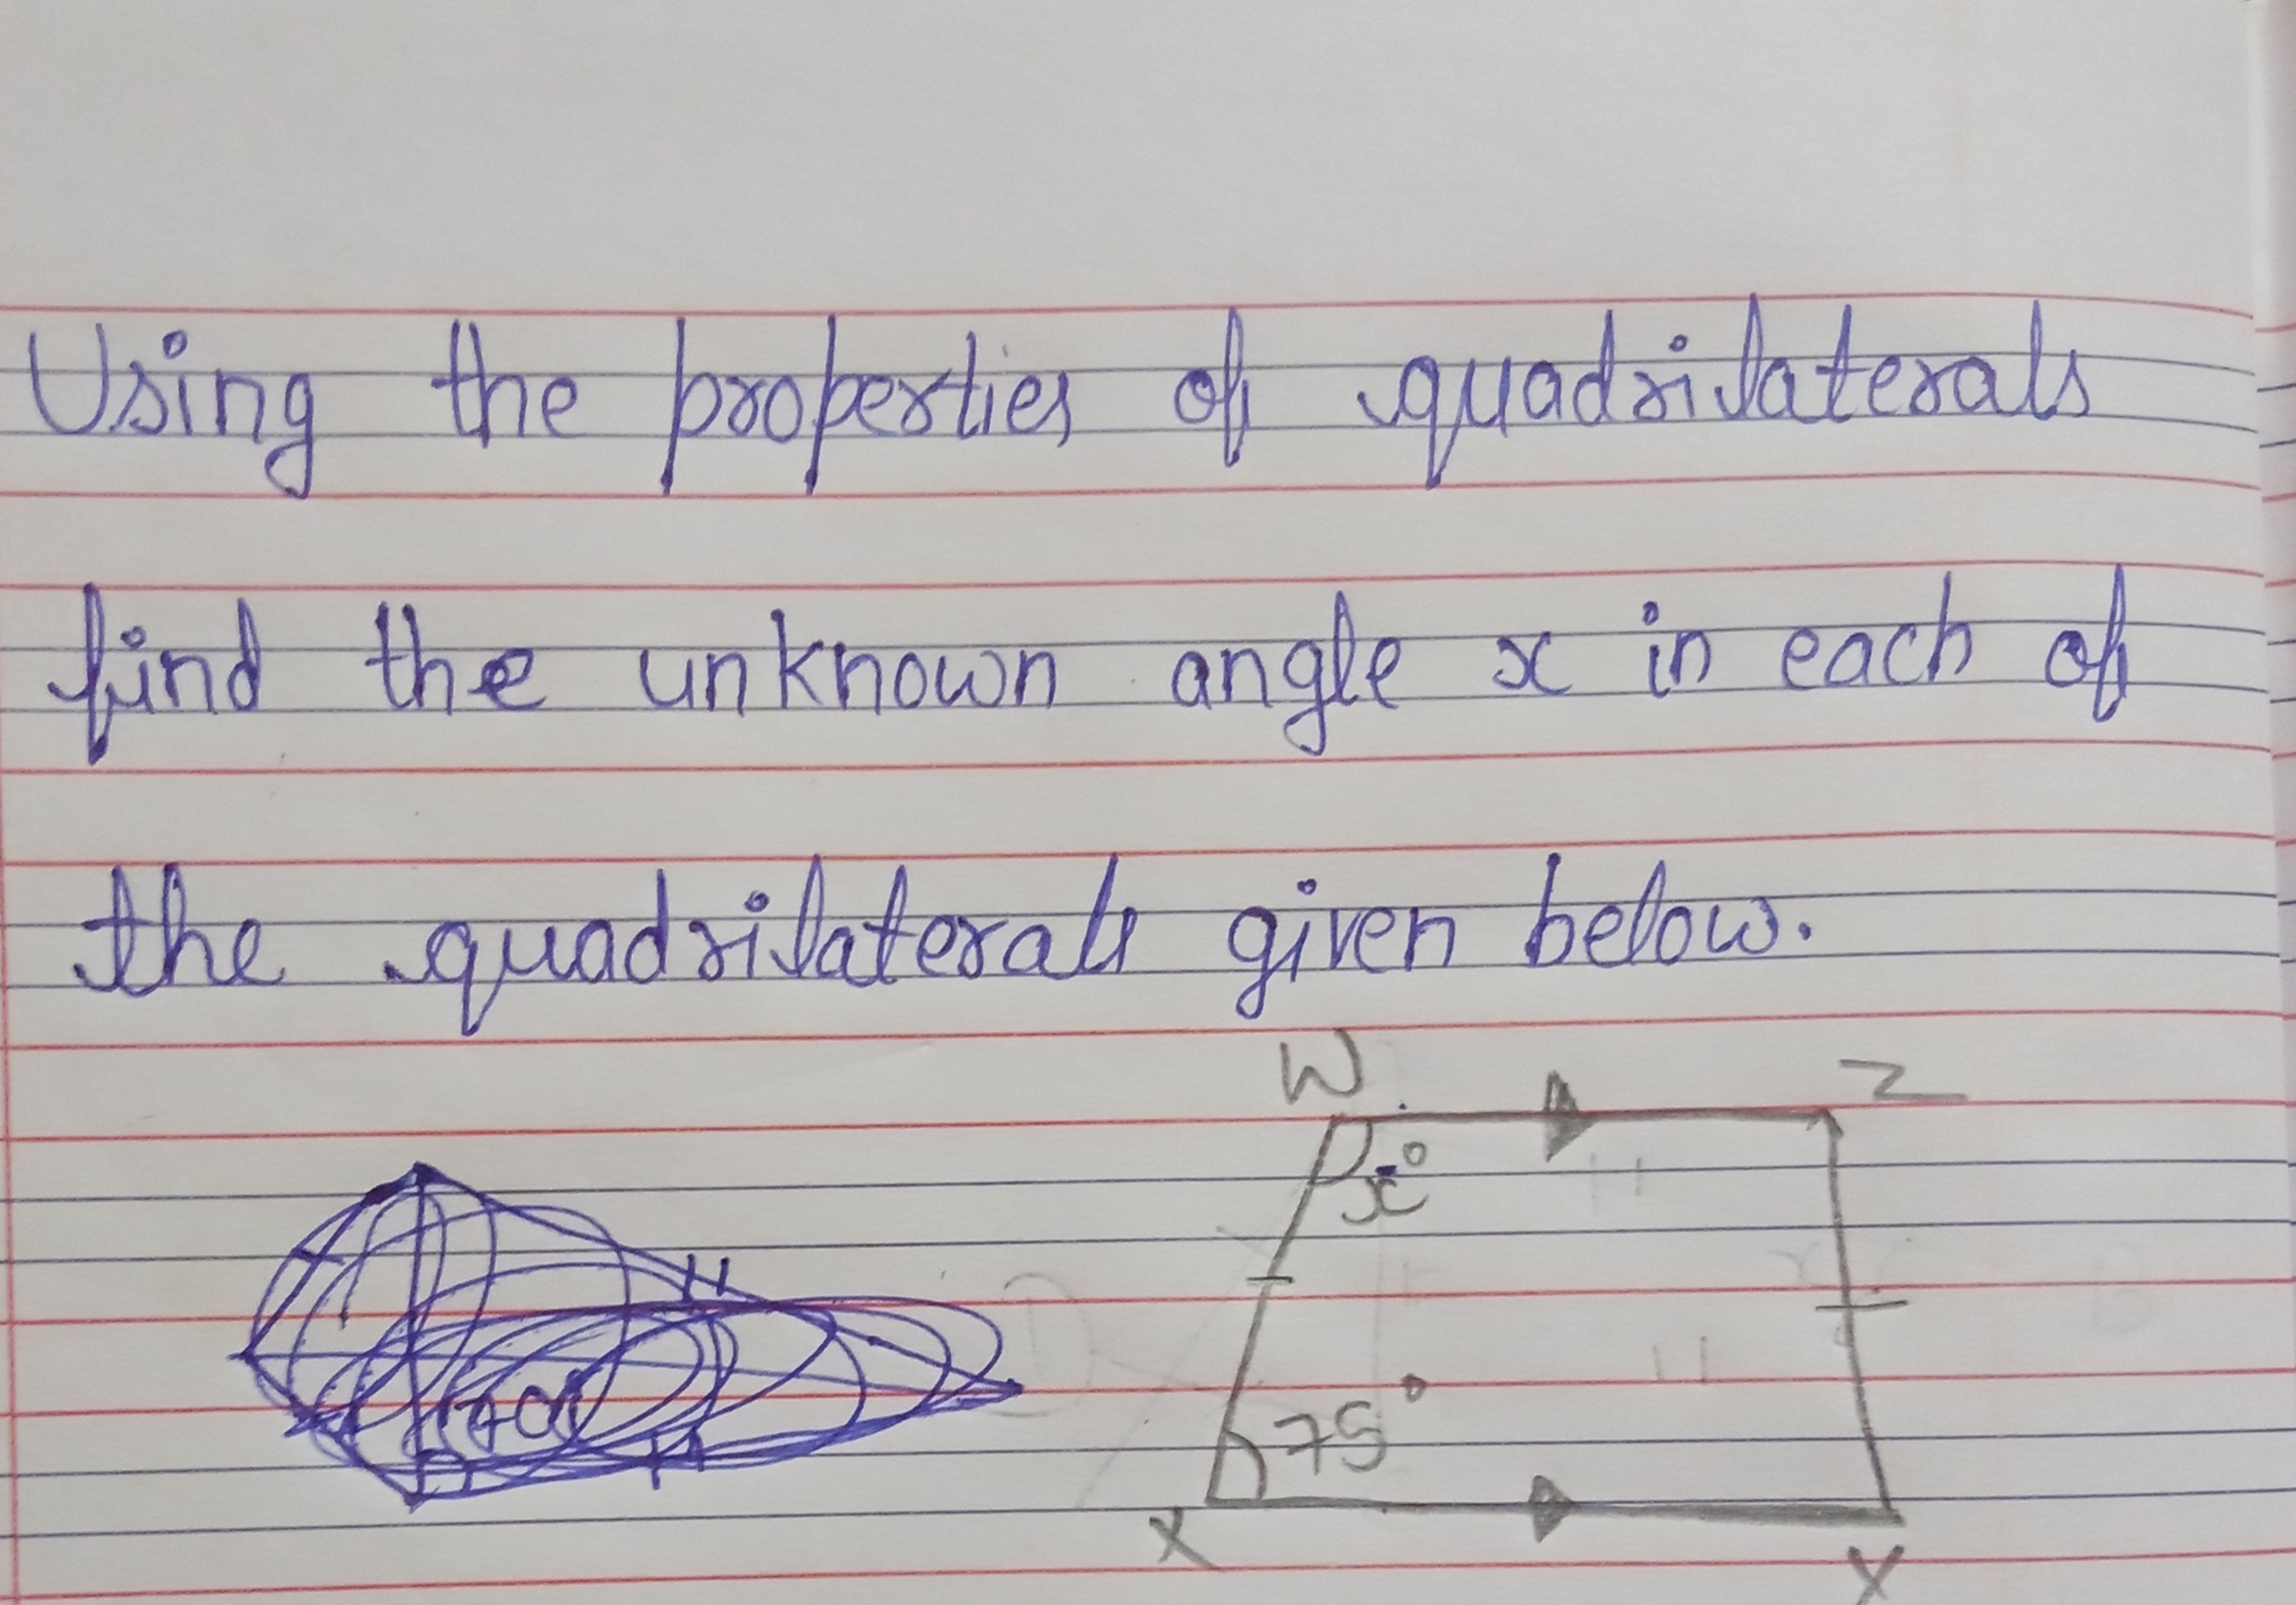 Using the properties of quadrilaterals
find the unknown angle x in each of
the quadrilaterals given below.
W Z
x°
75°
X Y